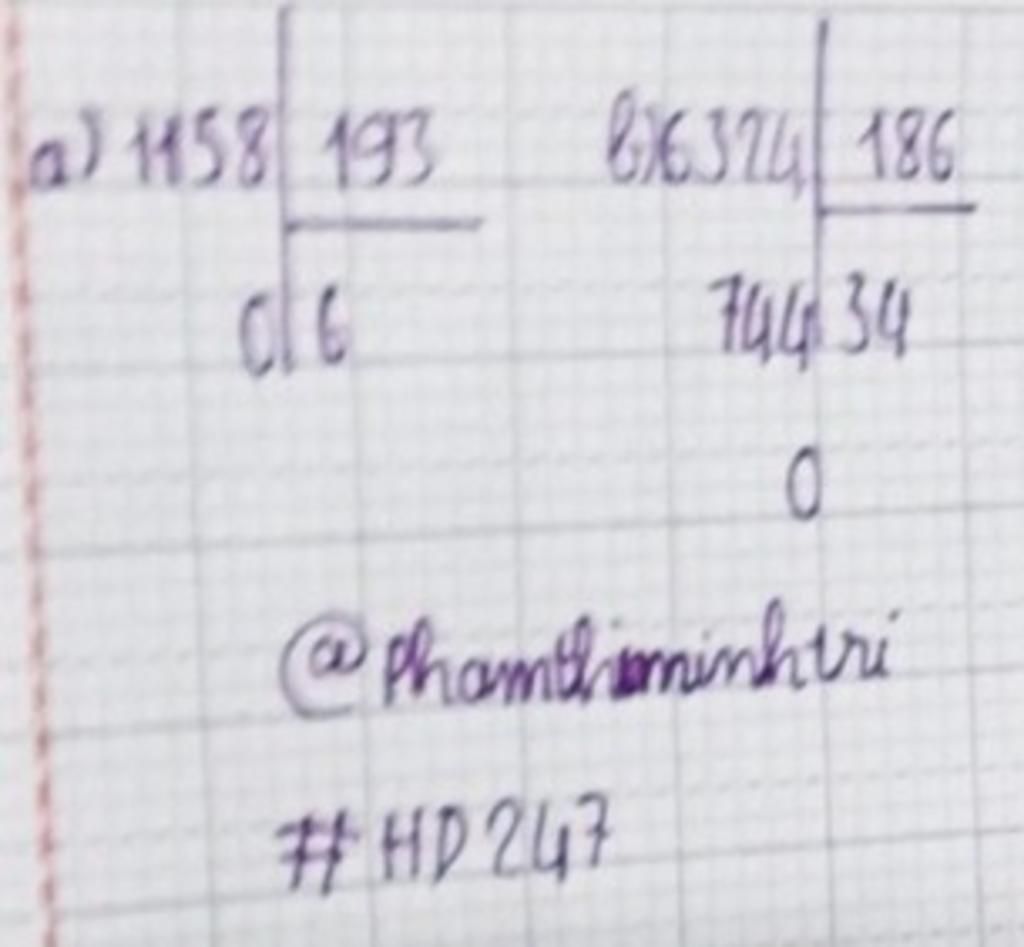 a) 1158 193 b) 6324 186
0 6 744 34
0
@Phamthiminhtri
#HD247